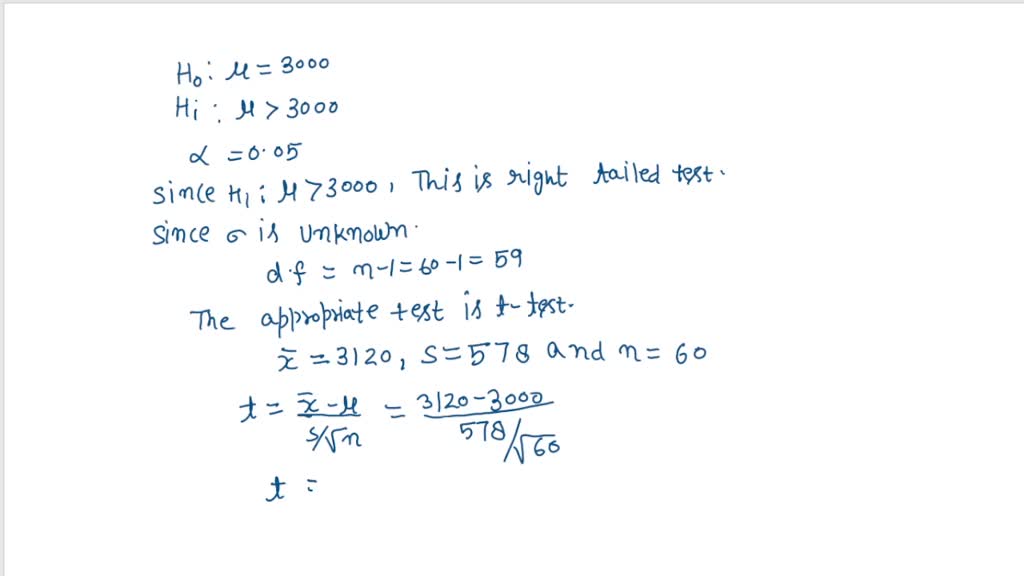 H₀: μ = 3000
Hi : μ > 3000
α = 0.05
since H₁: μ > 3000, This is right tailed test.
since σ is unknown.
d.f = n-1 = 60-1 = 59
The appropriate test is t-test.
x̄ = 3120, s = 578 and n = 60
t = x̄-μ / s/√n = 3120-3000 / 578/√60
t =